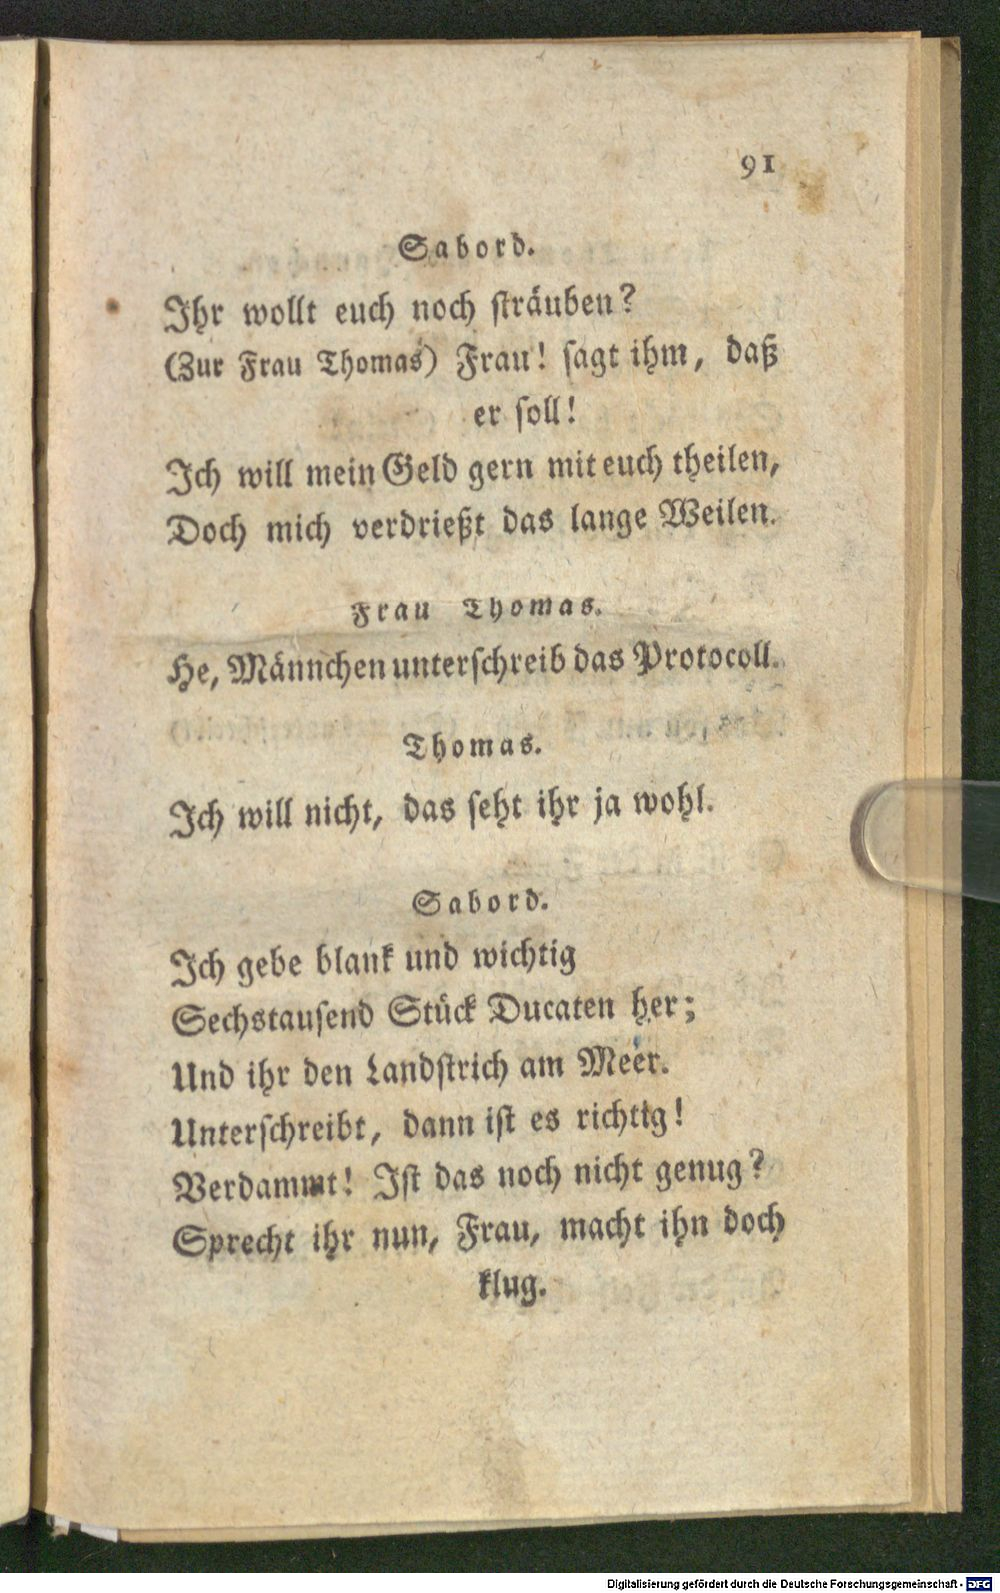 91
Sabord.
Ihr wollt euch noch sträuben?
(Zur Frau Thomas) Frau! sagt ihm, daß
er soll!
Ich will mein Geld gern mit euch theilen,
Doch mich verdrießt das lange Weilen.
Frau Thomas.
He, Männchen unterschreib das Protocoll.
Thomas.
Ich will nicht, das seht ihr ja wohl.
Sabord.
Ich gebe blank und wichtig
Sechstausend Stück Ducaten her;
Und ihr den Landstrich am Meer.
Unterschreibt, dann ist es richtig!
Verdammt! Ist das noch nicht genug?
Sprecht ihr nun, Frau, macht ihn doch
klug.
Digitalisierung gefördert durch die Deutsche Forschungsgemeinschaft - DFG